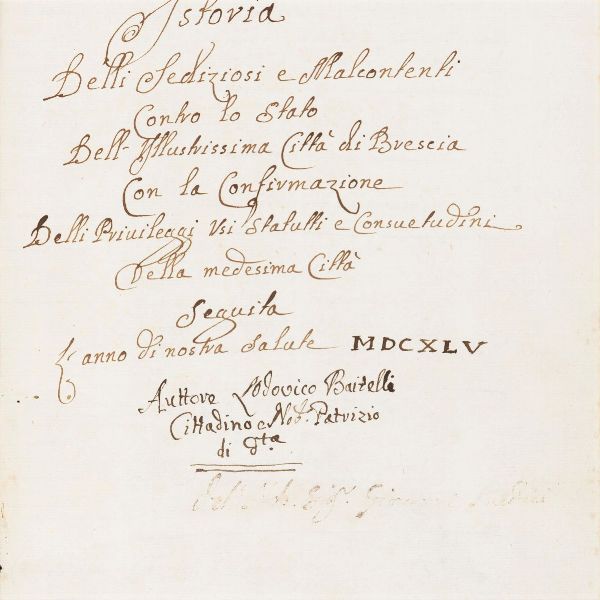 Istoria
Delli Sediziosi e Malcontenti
Contro lo Stato
Dell' Yllustrissima Città di Brescia
Con la Confirmazione
Delli Privileggi Usi Statutti e Consuetudini
della medesima Città
Seguita
L'anno di nostra Salute MDCXLV
Auttore Lodovico Baitelli
Cittadino e Nob.e Patrizio
di d.ta